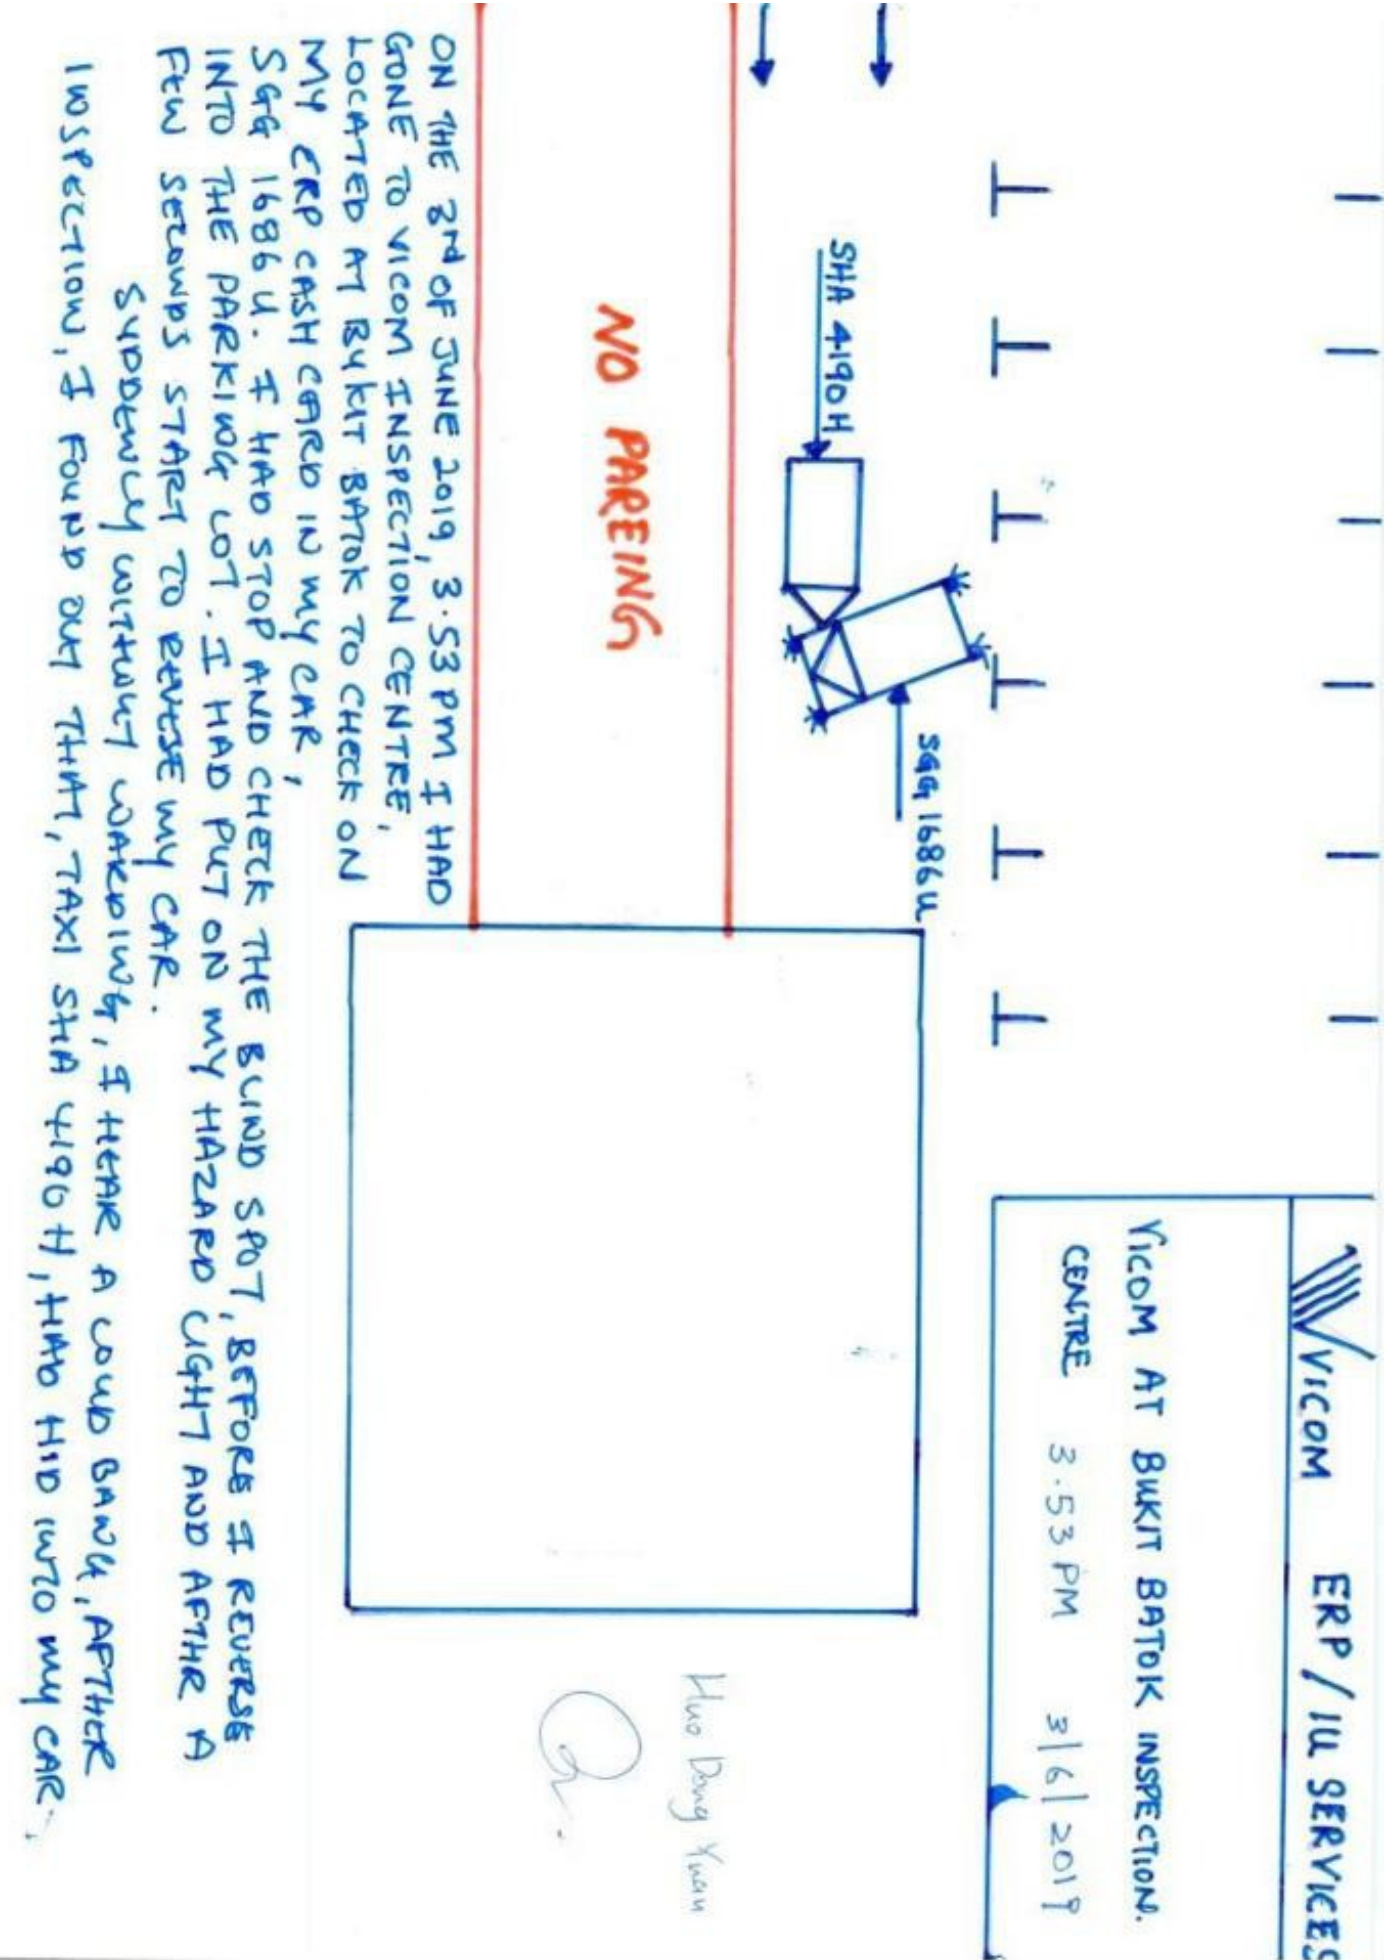 VICOM ERP/IU SERVICES
VICOM AT BUKIT BATOK INSPECTION.
CENTRE 3.53PM 3/6/2019
SHA 4190H
SGG 1686U
NO PAREING
Huo Dong Yuan
ON THE 3rd OF JUNE 2019, 3.53PM I HAD
GONE TO VICOM INSPECTION CENTRE,
LOCATED AT BUKIT BATOK TO CHECK ON
MY ERP CASH CARD IN MY CAR,
SGG 1686U. I HAD STOP AND CHECK THE BLIND SPOT, BEFORE I REVERSE
INTO THE PARKING LOT. I HAD PUT ON MY HAZARD LIGHT AND AFTHR A
FEW SECONDS START TO REVESE MY CAR.
SUDDENLY WITHOUT WARDING, I HEAR A LOUD BANG, AFTHER
INSPECTION, I FOUND OUT THAT, TAXI SHA 4190H, HAD HID INTO MY CAR.